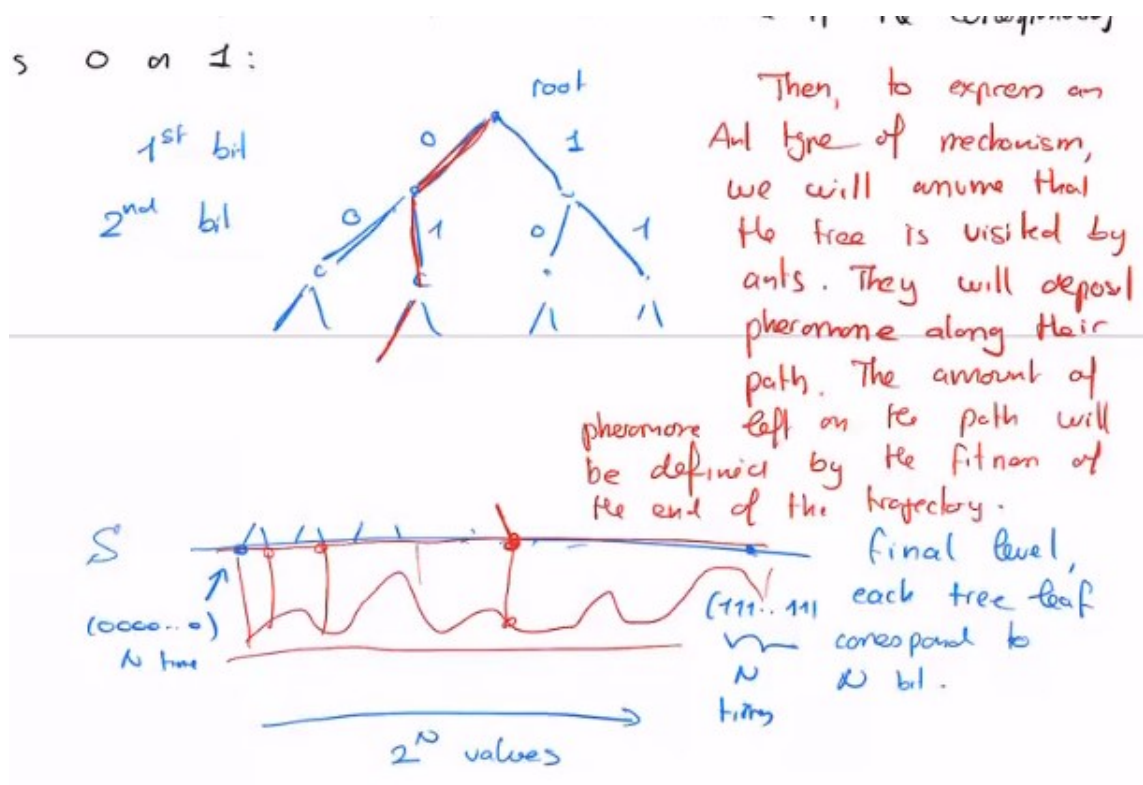 s 0 or 1:
root
1st bit
0
1
2nd bit
0
1
0
1
Then, to express an
Ant type of mechanism,
we will assume that
the tree is visited by
ants. They will deposit
pheromone along their
path. The amount of
pheromone left on the path will
be defined by the fitness of
the end of the trajectory.
S
final level,
each tree leaf
correspond to
N bit.
(0000...0)
N time
(111..11)
N
times
2^N values